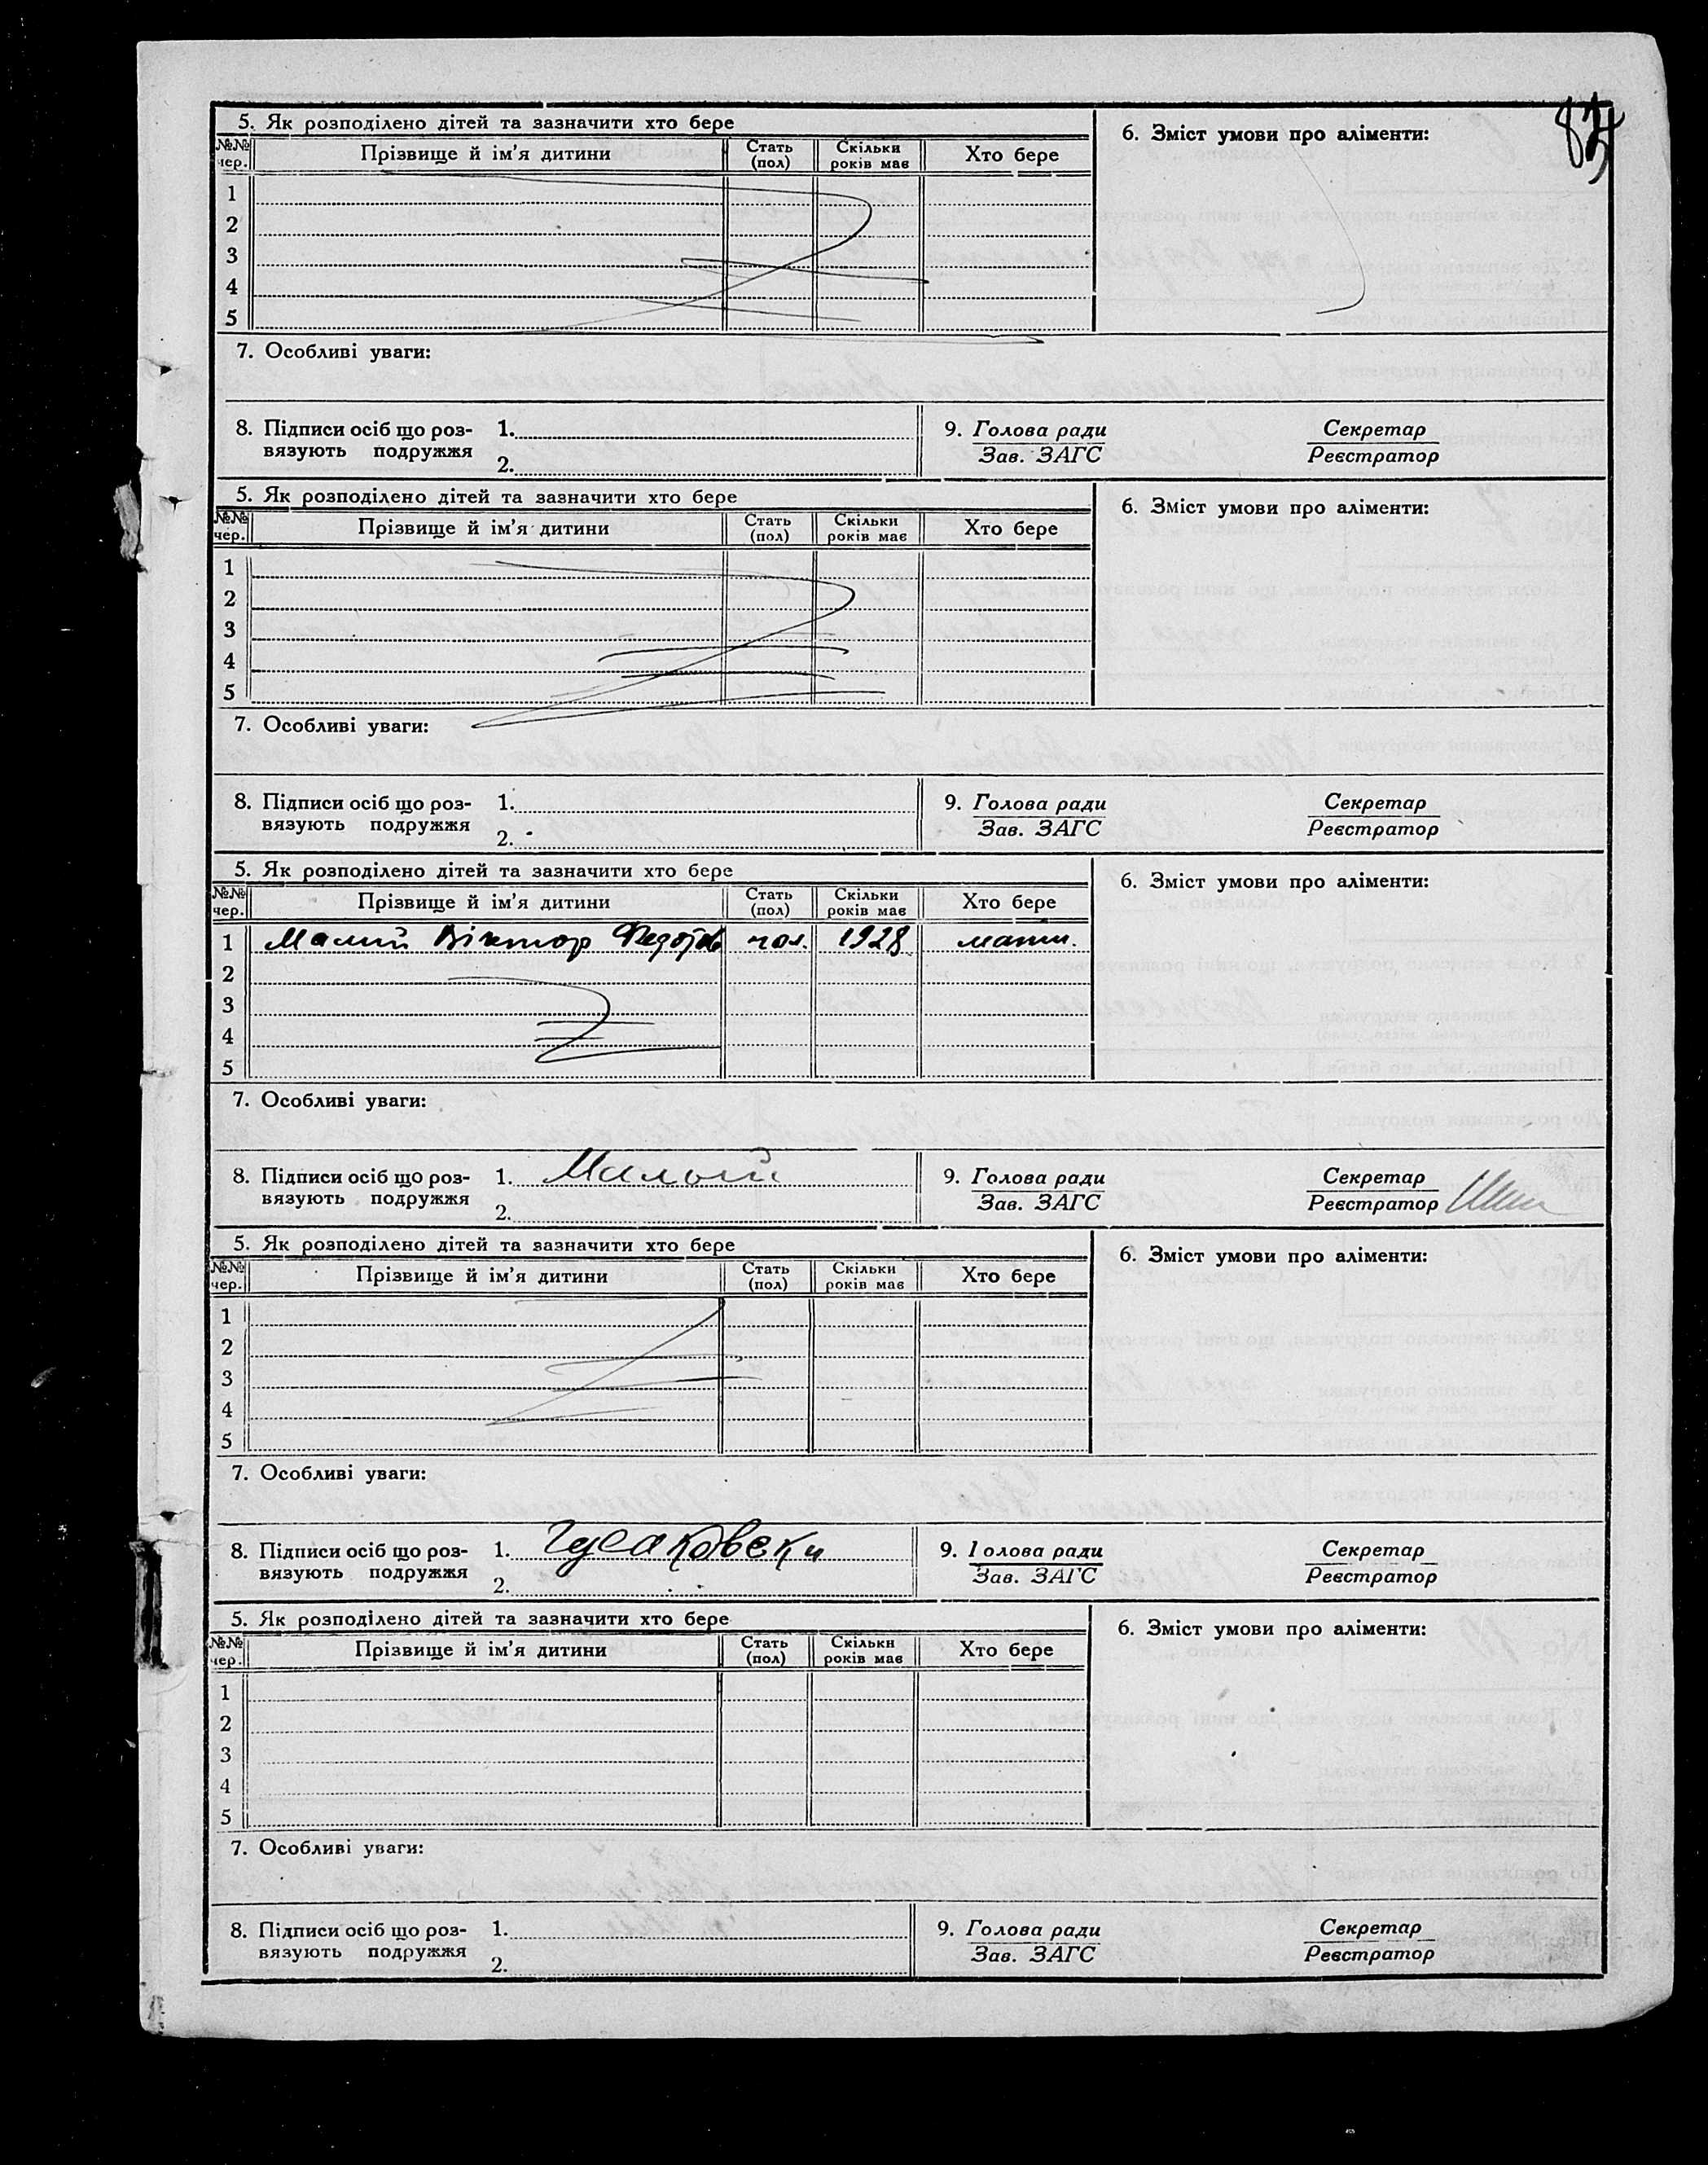 5. Як розподілено дітей та зазначити хто бере
6. Зміст умови про аліменти:
№№ чер. Прізвище й ім'я дитини Стать (пол) Скільки років має Хто бере
1
2
3
4
5
7. Особливі уваги:
8. Підписи осіб що роз-
вязують подружжя
1.
2.
9. Голова ради
Зав. ЗАГС
Секретар
Реєстратор
5. Як розподілено дітей та зазначити хто бере
6. Зміст умови про аліменти:
№№ чер. Прізвище й ім'я дитини Стать (пол) Скільки років має Хто бере
1
2
3
4
5
7. Особливі уваги:
8. Підписи осіб що роз-
вязують подружжя
1.
2.
9. Голова ради
Зав. ЗАГС
Секретар
Реєстратор
5. Як розподілено дітей та зазначити хто бере
6. Зміст умови про аліменти:
№№ чер. Прізвище й ім'я дитини Стать (пол) Скільки років має Хто бере
1 Малий Віктор чол. 1928 мати.
2
3
4
5
7. Особливі уваги:
8. Підписи осіб що роз-
вязують подружжя
1. Малый
2.
9. Голова ради
Зав. ЗАГС
Секретар
Реєстратор
5. Як розподілено дітей та зазначити хто бере
6. Зміст умови про аліменти:
№№ чер. Прізвище й ім'я дитини Стать (пол) Скільки років має Хто бере
1
2
3
4
5
7. Особливі уваги:
8. Підписи осіб що роз-
вязують подружжя
1. Гусаковски
2.
9. Голова ради
Зав. ЗАГС
Секретар
Реєстратор
5. Як розподілено дітей та зазначити хто бере
6. Зміст умови про аліменти:
№№ чер. Прізвище й ім'я дитини Стать (пол) Скільки років має Хто бере
1
2
3
4
5
7. Особливі уваги:
8. Підписи осіб що роз-
вязують подружжя
1.
2.
9. Голова ради
Зав. ЗАГС
Секретар
Реєстратор